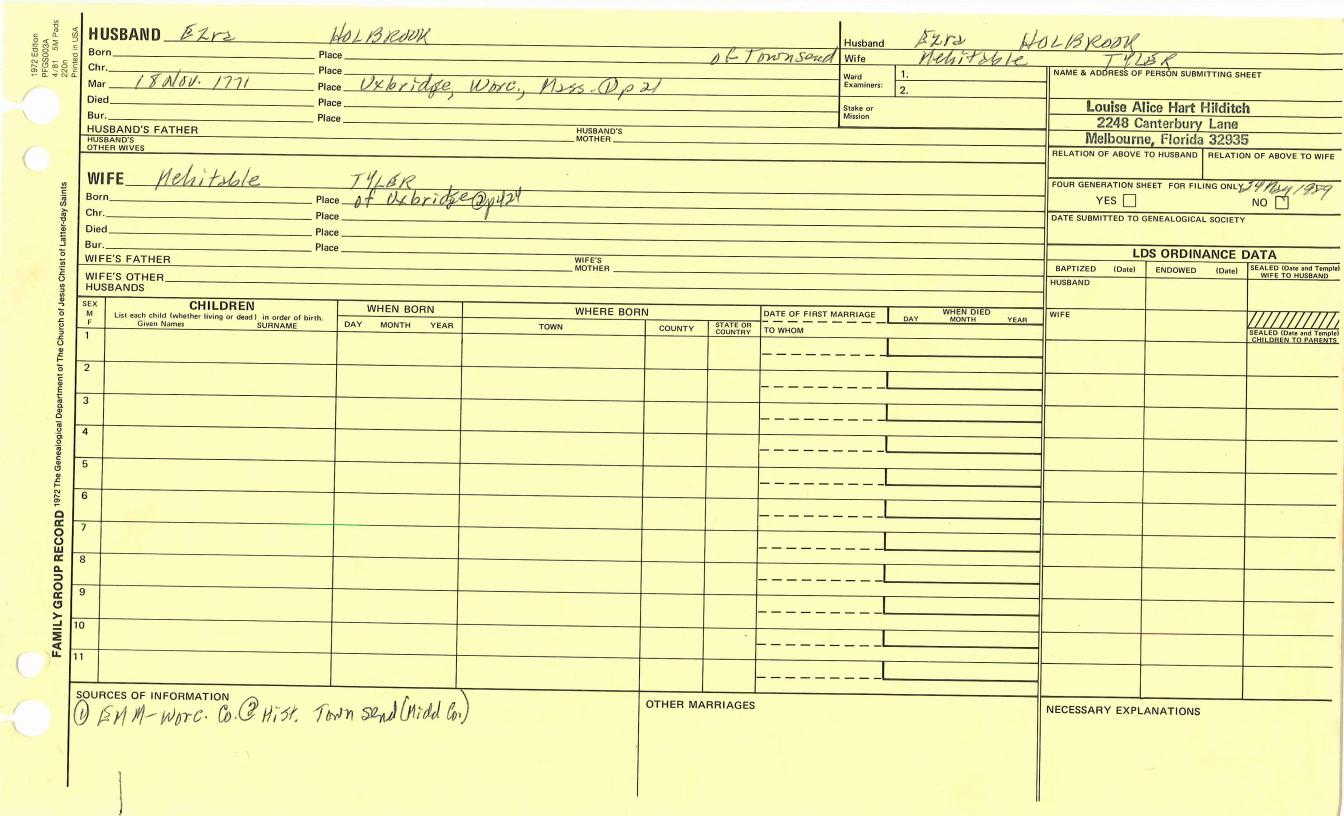 1972 Edition
PFGS003A
4/81 5M Pads
220n
Printed in USA
FAMILY GROUP RECORD 1972 The Genealogical Department of The Church of Jesus Christ of Latter-day Saints
HUSBAND Ezra HOLBROOK
Born Place of Townsend
Chr. Place
Mar 18 Nov. 1771 Place Uxbridge, Worc., Mass. ① p 21
Died Place
Bur. Place
HUSBAND'S FATHER HUSBAND'S MOTHER
HUSBAND'S OTHER WIVES
Husband Ezra HOLBROOK
Wife Mehitable TYLER
Ward Examiners: 1.
2.
Stake or Mission
NAME & ADDRESS OF PERSON SUBMITTING SHEET
Louise Alice Hart Hilditch
2248 Canterbury Lane
Melbourne, Florida 32935
RELATION OF ABOVE TO HUSBAND RELATION OF ABOVE TO WIFE
FOUR GENERATION SHEET FOR FILING ONLY May 1989
YES NO
DATE SUBMITTED TO GENEALOGICAL SOCIETY
WIFE Mehitable TYLER
Born Place of Uxbridge ② p424
Chr. Place
Died Place
Bur. Place
WIFE'S FATHER WIFE'S MOTHER
WIFE'S OTHER HUSBANDS
LDS ORDINANCE DATA
BAPTIZED (Date) ENDOWED (Date) SEALED (Date and Temple) WIFE TO HUSBAND
HUSBAND
WIFE
SEALED (Date and Temple) CHILDREN TO PARENTS
SEX M F
CHILDREN
List each child (whether living or dead) in order of birth.
Given Names SURNAME
WHEN BORN
DAY MONTH YEAR
WHERE BORN
TOWN COUNTY STATE OR COUNTRY
DATE OF FIRST MARRIAGE
TO WHOM
WHEN DIED
DAY MONTH YEAR
1
2
3
4
5
6
7
8
9
10
11
SOURCES OF INFORMATION
① EMM-Worc. Co. ② Hist. Townsend (Midd Co.)
OTHER MARRIAGES
NECESSARY EXPLANATIONS